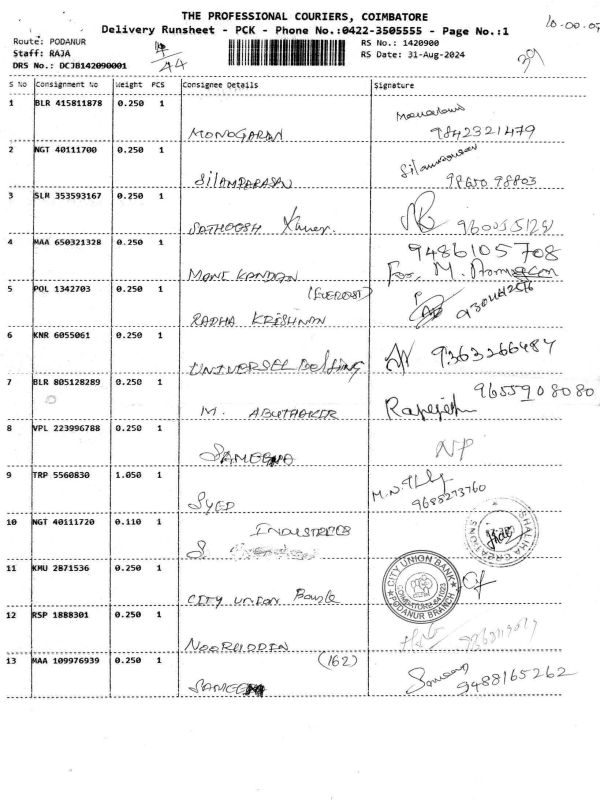 THE PROFESSIONAL COURIERS, COIMBATORE
Delivery Runsheet - PCK - Phone No.:0422-3505555 - Page No.:1
Route: PODANUR
Staff: RAJA
DRS No.: DCJB142090001
44
RS No.: 1420900
RS Date: 31-Aug-2024
39
S No Consignment No Weight PCS Consignee Details Signature
1 BLR 415811878 0.250 1
MONOGARAN 9842321479
2 NGT 40111700 0.250 1
SILAMPARASAN 98650 98803
3 SLM 353593167 0.250 1
SATHOOSH Xavier.
4 MAA 650321328 0.250 1 9486105708
MANI KANDAN For, M.
5 POL 1342703 0.250 1 (EVEREST)
RADHA KRISHNAN
6 KNR 6055061 0.250 1
UNIVERSEL 9363266487
7 BLR 805128289 0.250 1 9655908080
M. ABUTHAKIR
8 VPL 223996788 0.250 1
SAMEENA NP
9 TRP 5560830 1.050 1
SYED M.N. 9688273760
10 NGT 40111720 0.110 1 INDUSTREES
S
11 KMU 2871536 0.250 1
CITY UNION Bank
CITY UNION BANK
COIMBATORE-641023
PODANUR BRANCH
12 RSP 1888301 0.250 1
NOORUDDIN
13 MAA 109976939 0.250 1 (162)
SAMEENA 9488165262